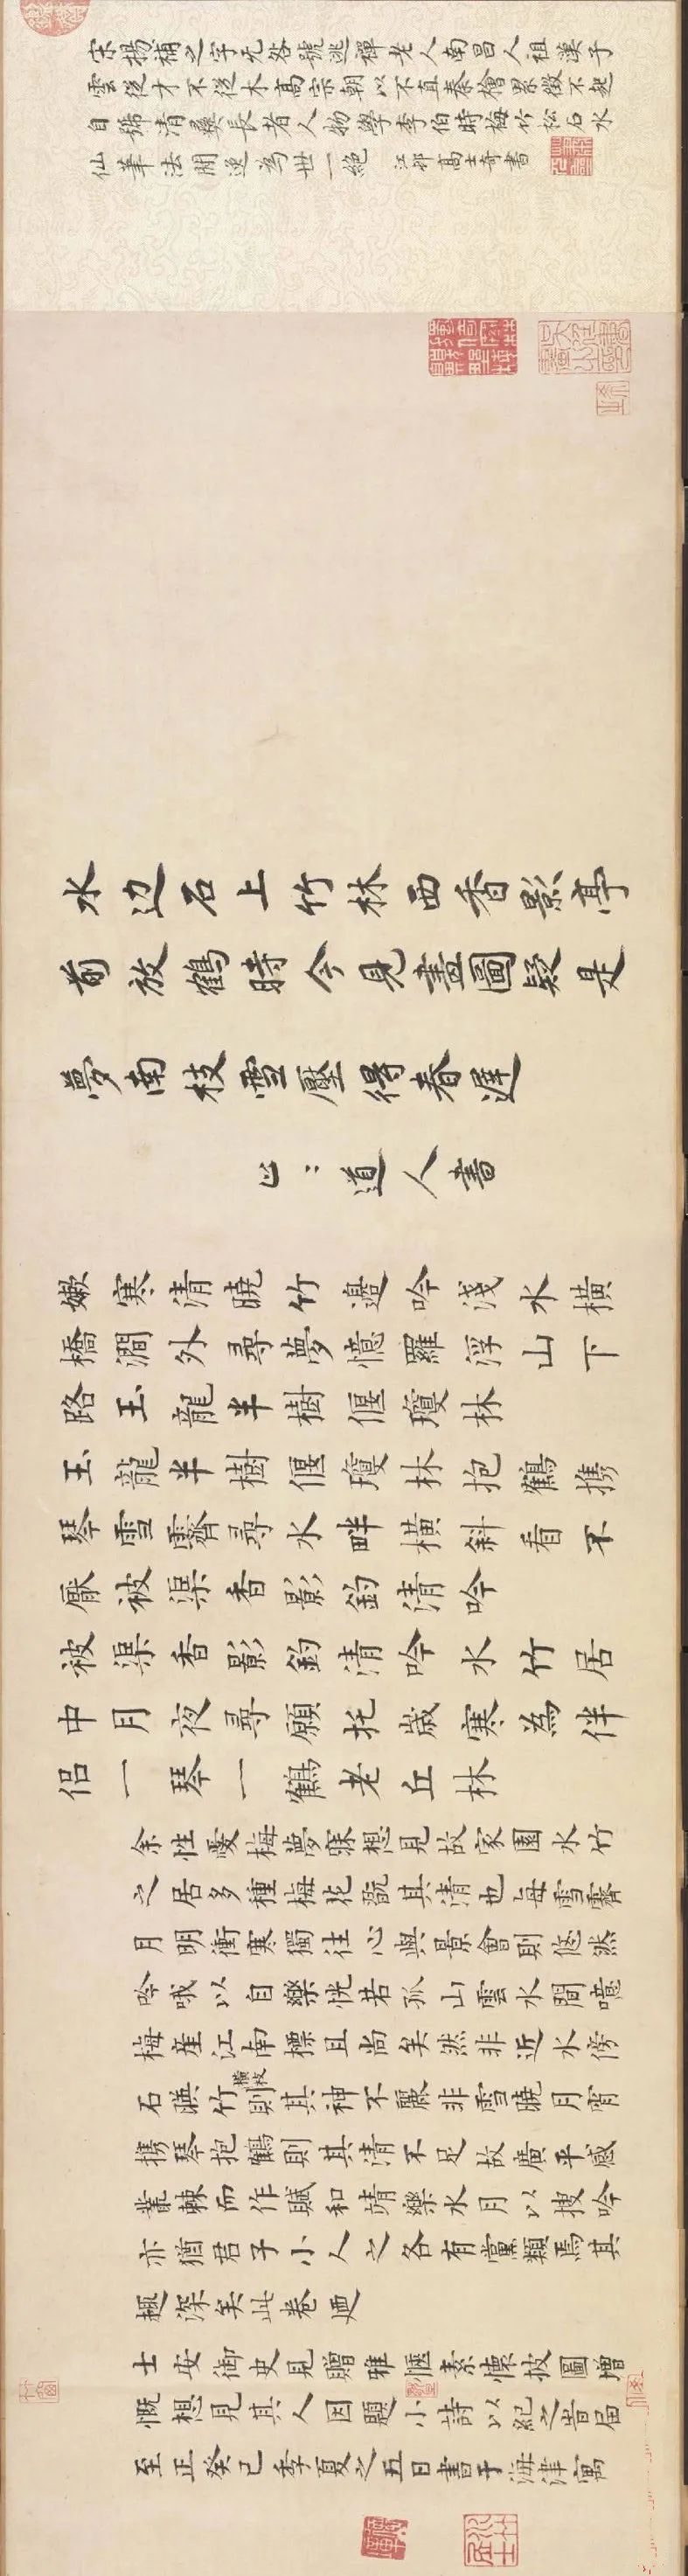 宋揚補之字无咎號逃禪老人南昌人祖漢子
雲後才不從木高宗朝以不直秦檜累徵不起
自號清夷長者人物學李伯時梅竹松石水
仙筆法閒逸為世一絕 江邨高士奇書
水边石上竹林西香影亭
前放鶴時今見畫圖疑是
夢南枝雪壓得春遲
道人書
嫩寒清曉竹邊吟淺水橫
橋澗外尋夢憶羅浮山下
路玉龍半樹偃瓊林
玉龍半樹偃瓊林抱鶴攜
琴雪霽尋水畔橫斜看不
厭被渠香影釣清吟
被渠香影釣清吟水竹居
中月夜尋願托歲寒為伴
侶一琴一鶴老丘林
余性愛梅夢寐想見故家園水竹
之居多種梅花翫其清也每雪霽
月明衝寒獨往心與景會則悠然
吟哦以自樂恍若孤山雲水間噫
梅產江南標且尚矣然非近水傍
石暎竹橫枝則其神不麗非雪曉月宵
攜琴抱鶴則其清不足故廣平感
叢棘而作賦和靖樂水月以搜吟
亦猶君子小人之各有黨類焉其
趣深矣此卷廼
士安御史見贈雅愜素懷披圖增
慨想見其人因題小詩以紀之旹屆
至正癸巳季夏之五日書于海津寓